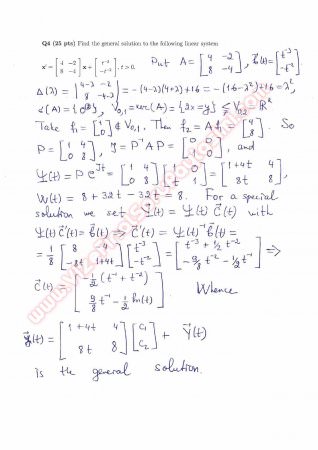 Q4 (25 pts) Find the general solution to the following linear system
x' = [4 -2; 8 -4] x + [t⁻³; -t⁻²], t>0. Put A = [4 -2; 8 -4], b⃗(t) = [t⁻³; -t⁻²]
Δ(λ) = |4-λ -2; 8 -4-λ| = -(4-λ)(4+λ)+16 = -(16-λ²)+16 = λ²,
σ(A) = {0⁽²⁾}, V₀,₁ = ker(A) = {2x=y} ≤ V₀,₂ = ℝ²
Take f₁ = [1; 0] ∉ V₀,₁, Then f₂ = A f₁ = [4; 8]. So
P = [1 4; 0 8], J = P⁻¹AP = [0 0; 1 0], and
Ψ(t) = P e^{Jt} = [1 4; 0 8] [1 0; t 1] = [1+4t 4; 8t 8],
W(t) = 8 + 32t - 32t = 8. For a special
solution we set Y⃗(t) = Ψ(t) C⃗(t) with
Ψ(t) C⃗'(t) = b⃗(t) => C⃗'(t) = Ψ(t)⁻¹ b⃗(t) =
= 1/8 [8 -4; -8t 1+4t] [t⁻³; -t⁻²] = [t⁻³ + 1/2 t⁻²; -9/8 t⁻² - 1/2 t⁻¹] =>
C⃗(t) = [-1/2 (t⁻¹ + t⁻²); 9/8 t⁻¹ - 1/2 ln(t)] Whence
y⃗(t) = [1+4t 4; 8t 8] [C₁; C₂] + Y⃗(t)
is the general solution.